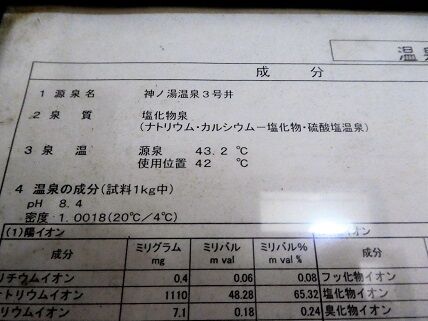 温泉
成 分
1 源泉名 神ノ湯温泉3号井
2 泉質 塩化物泉
(ナトリウム・カルシウム－塩化物・硫酸塩温泉)
3 泉温 源泉 43.2 ℃
使用位置 42 ℃
4 温泉の成分(試料1kg中)
pH 8.4
密度 1.0018(20℃/4℃)
(1)陽イオン イオン
成分 ミリグラム mg ミリバル m val ミリバル% m val % 成分
リチウムイオン 0.4 0.06 0.08 フッ化物イオン
ナトリウムイオン 1110 48.28 65.32 塩化物イオン
リウムイオン 7.1 0.18 0.24 臭化物イオン